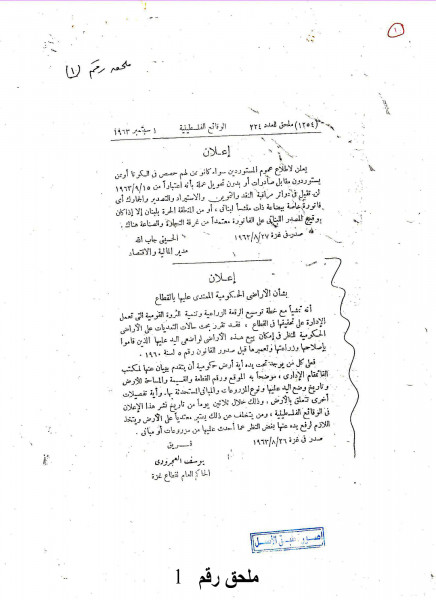 ١
ملحق رقم (١)
(١٢٥٤) ملحق للعدد ٢٢٤ الوقائع الفلسطينية ١ سبتمبر ١٩٦٣
إعلان
يعلن لاطلاع عموم المستوردين سواء كانوا من لهم حصص في السكوتا أو من
يستوردون مقابل صادرات أو بدون تحويل عملة بأنه اعتباراً من ١٩٦٣/٩/١٥
لن تقبل في دوائر مراقبة النقد والتموين والاستيراد والتصدير والجمارك أي
فاتورة خاصة ببضاعة ذات منشأ لبناني ، أو من المنطقة الحرة بلبنان إلا إذا كان
توقيع المصدر اللبناني على الفاتورة معتمداً من غرفة التجارة والصناعة هناك .
صدر في غزة ١٩٦٣/٨/٢٧
الحسيني جاب الله
مدير المالية والاقتصاد
إعلان
بشأن الأراضي الحكومية المعتدى عليها بالقطاع
أنه تمشياً مع خطة توسيع الرقعة الزراعية وتنمية الثروة القومية التي تعمل
الإدارة على تحقيقها في القطاع ، فقد تقرر بحث حالات التعديات على الأراضي
الحكومية للنظر في إمكان بيع هذه الأراضي لواضعي اليد عليها الذين قاموا
بإصلاحها وزراعتها وتعميرها قبل صدور القانون رقم ٥ لسنة ١٩٦٠ .
فعلى كل من يوجد تحت يده أية أرض حكومية أن يتقدم ببيان عنها لمكتب
القائمقام الإداري ، موضحاً به الموقع ورقم القطعة والقسيمة والمساحة للأرض
وتاريخ وضع اليد عليها ونوع المزروعات والمباني المستحدثة بها ، وأية تفصيلات
أخرى تتعلق بالأرض ، وذلك خلال ثلاثين يوماً من تاريخ نشر هذا الإعلان
في الوقائع الفلسطينية ، ومن يتخلف عن ذلك يعتبر معتدياً على الأرض ويتخذ
اللازم لرفع يده عنها بغض النظر عما أحدث عليها من مزروعات أو مباني .
صدر في غزة ١٩٦٣/٨/٢٦
فريق
يوسف العجرودي
الحاكم العام لقطاع غزة
صورة طبق الأصل
ملحق رقم 1